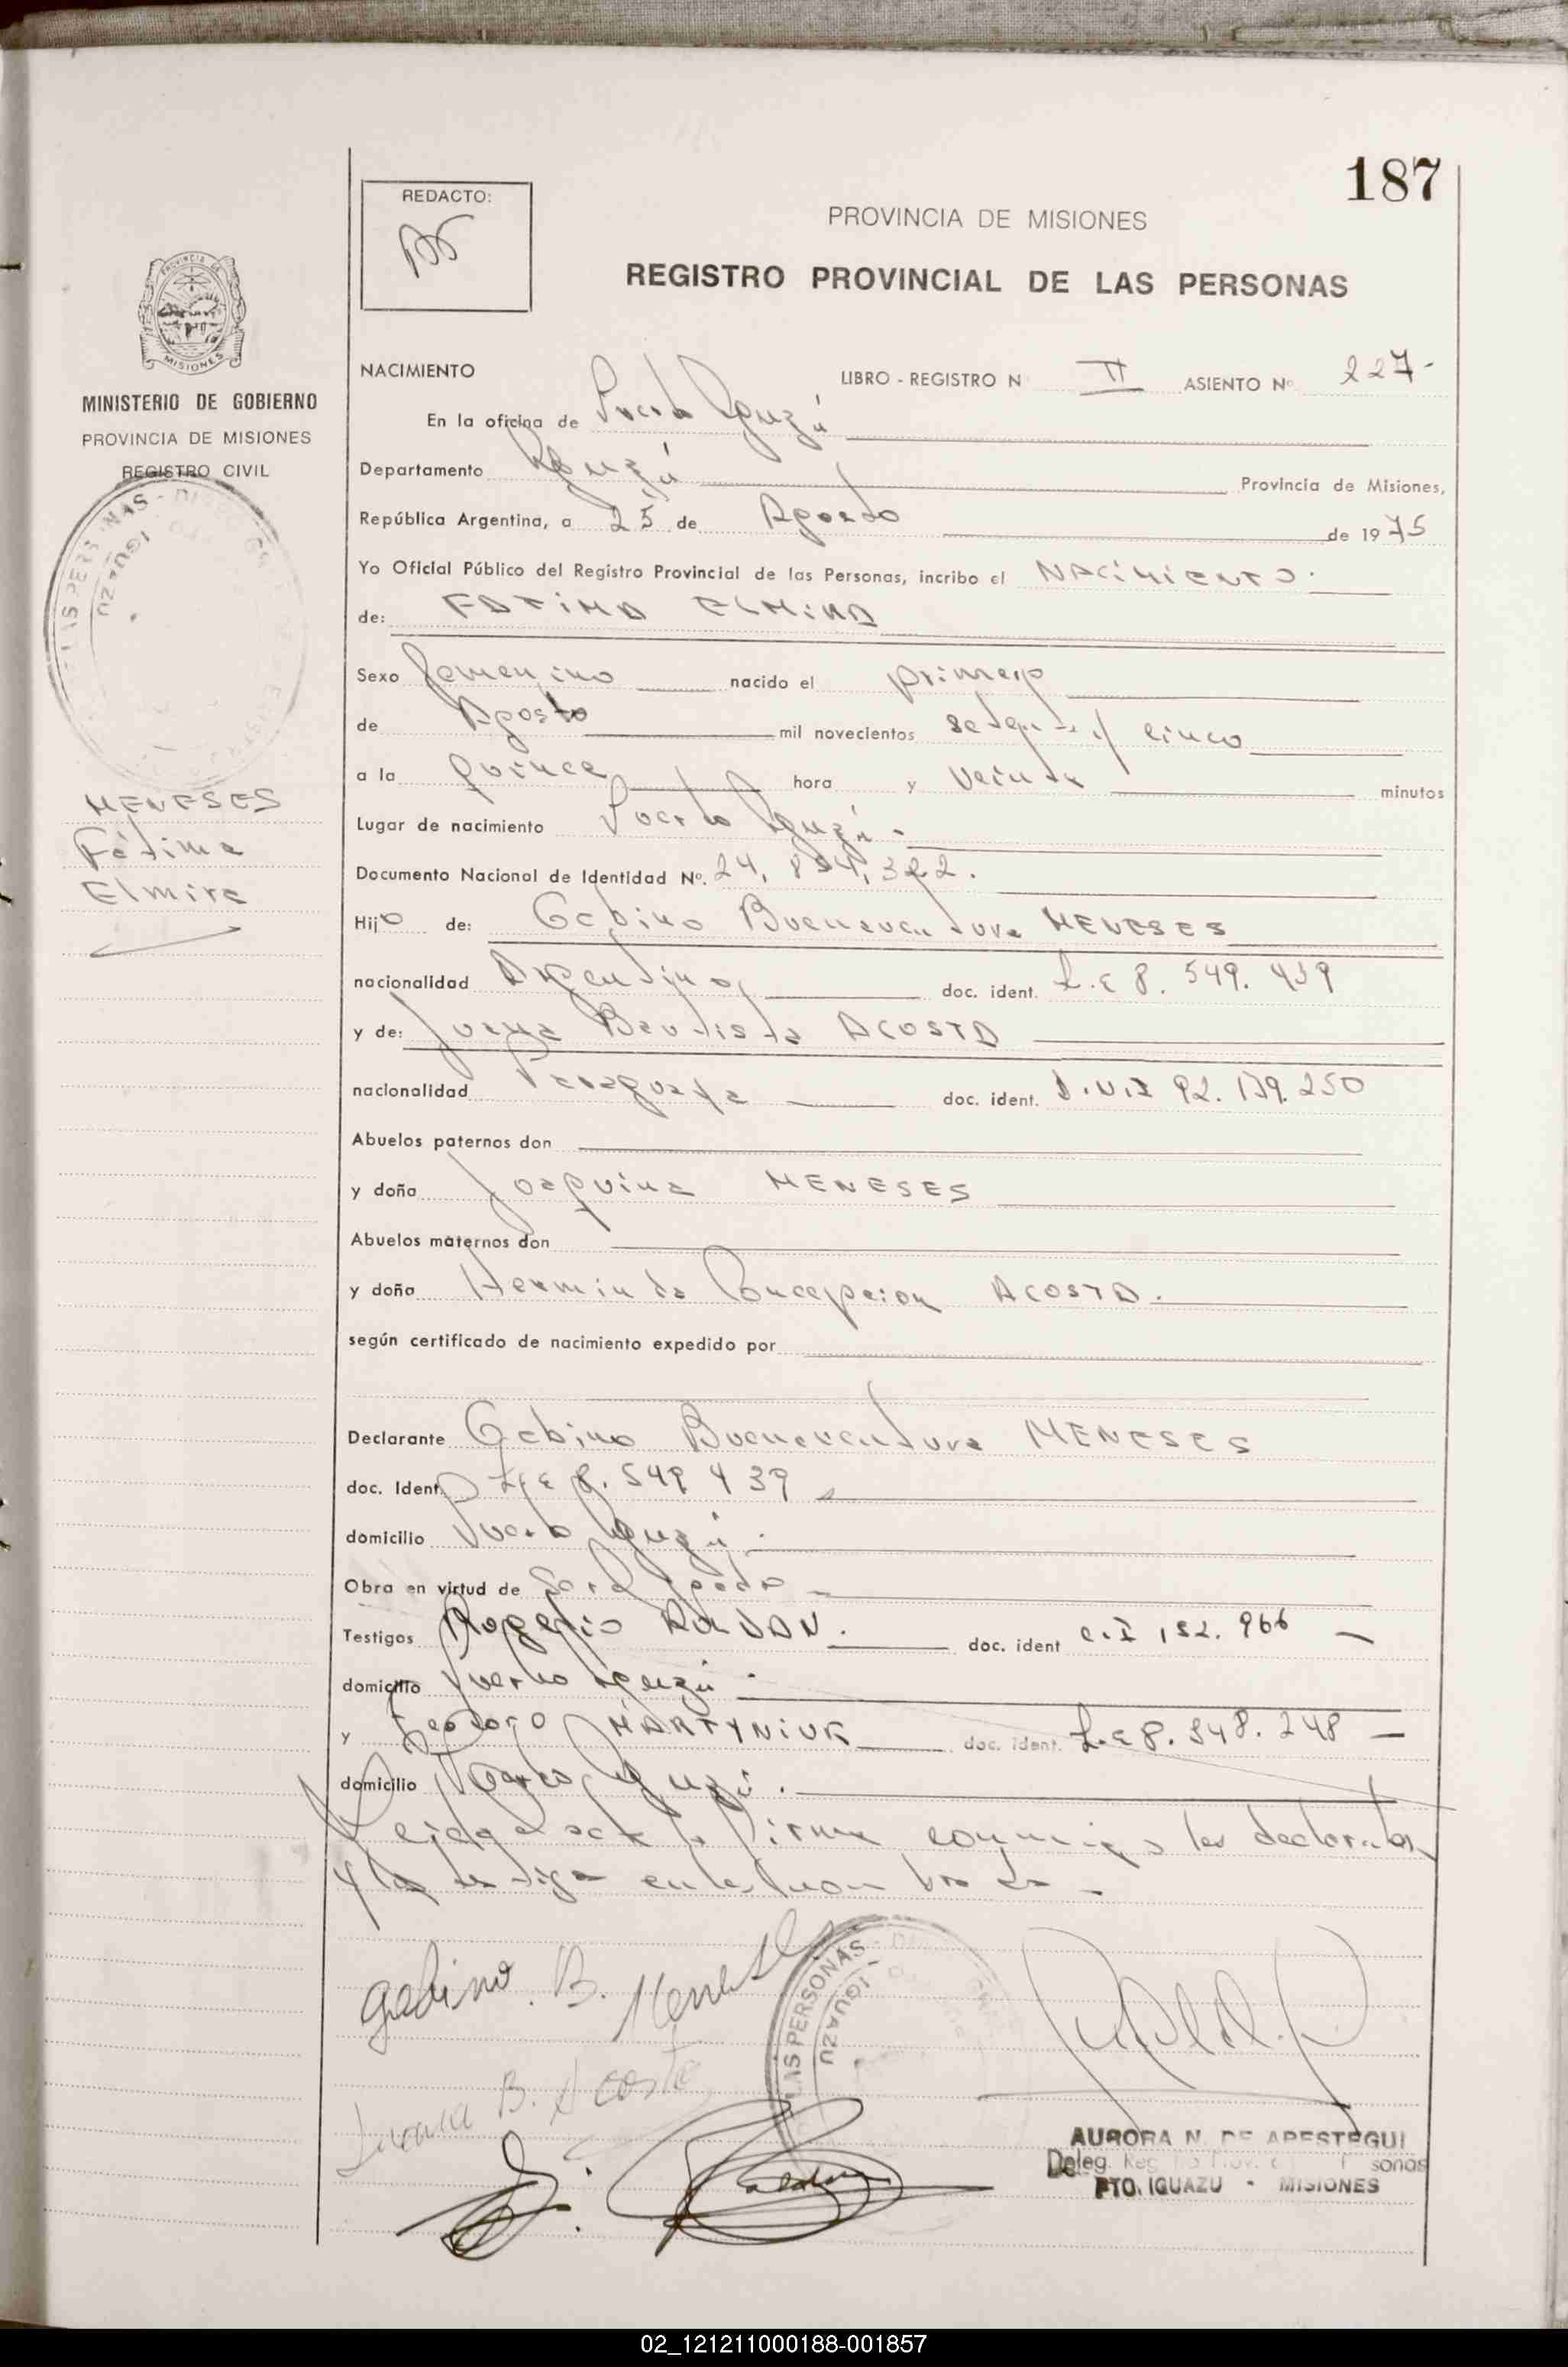 187
REDACTO:
PROVINCIA DE MISIONES
REGISTRO PROVINCIAL DE LAS PERSONAS
PROVINCIA DE
MISIONES
MINISTERIO DE GOBIERNO
PROVINCIA DE MISIONES
REGISTRO CIVIL
LAS PERSONAS - DI
IGUAZU
MENESES
Fátima
Elmira
NACIMIENTO LIBRO - REGISTRO N II ASIENTO Nº 227-
En la oficina de Puerto Iguazú
Departamento Iguazú Provincia de Misiones,
República Argentina, a 25 de Agosto de 1975
Yo Oficial Público del Registro Provincial de las Personas, incribo el NACIMIENTO.
de: FATIMA ELMIRA
Sexo femenino nacido el primero
de Agosto mil novecientos setenta y cinco
a la quince hora y veinte minutos
Lugar de nacimiento Puerto Iguazú -
Documento Nacional de Identidad Nº. 24. 322.
Hija de: Gabino Buenaventura MENESES
nacionalidad Argentino, doc. ident. L.E 8. 549. 439
y de: Juana Bautista ACOSTA
nacionalidad Paraguaya doc. ident. D.N.I 92. 139. 250
Abuelos paternos don
y doña Joaquina MENESES
Abuelos maternos don
y doña Herminda Concepcion ACOSTA.
según certificado de nacimiento expedido por
Declarante Gabino Buenaventura MENESES
doc. Ident. L.E 8. 549 439
domicilio Puerto Iguazú.
Obra en virtud de
Testigos Rogelio ROLDAN. doc. ident C.I 152. 966 -
domicilio Puerto Iguazú.
y Teodoro MARTYNIUK doc. ident. L.E 8. 548. 248 -
domicilio Puerto Iguazú.
Leída el acta la firma conmigo los declarantes
y los testigos
Gabino. B. Meneses
LAS PERSONAS - DI
IGUAZU
Juana B. Acosta
AURORA N. DE APESTEGUI
Deleg. Reg. Prov. sonas
PTO. IGUAZU - MISIONES
02_121211000188-001857